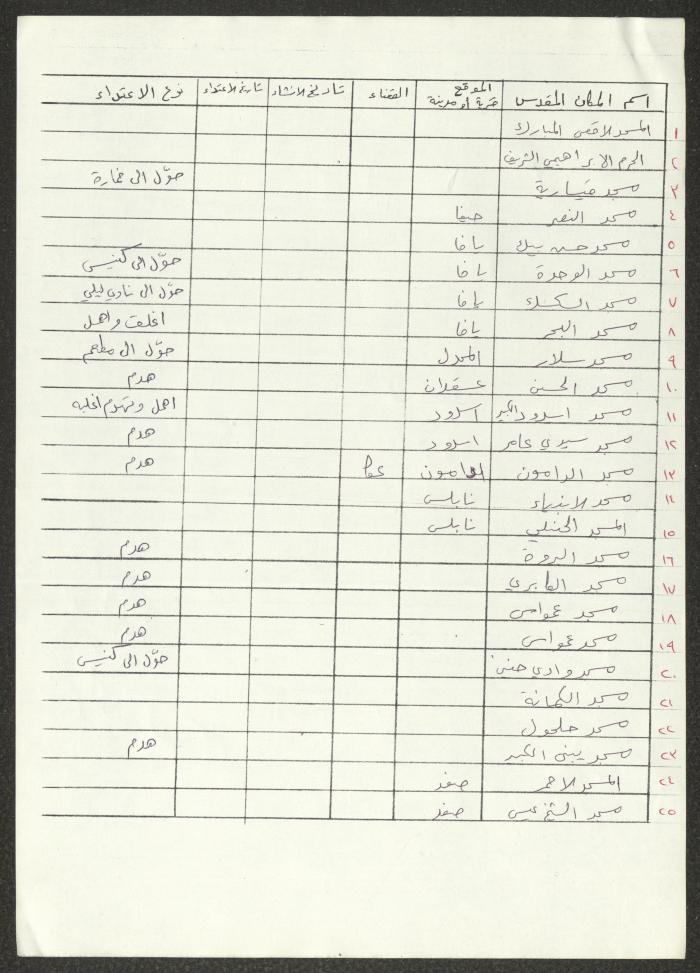 اسم المكان المقدس الموقع قرية أو مدينة القضاء تاريخ الانشاء تاريخ الاعتداء نوع الاعتداء
١ المسجد الاقصى المبارك
٢ الحرم الابراهيمي الشريف
٣ مسجد قيسارية حوّل الى خمارة
٤ مسجد النصر حيفا
٥ مسجد حسن بيك يافا
٦ مسجد الوحدة يافا حوّل الى كنيس
٧ مسجد السكسك يافا حوّل الى نادي ليلي
٨ مسجد البحر يافا اغلق واهمل
٩ مسجد سلار المجدل حوّل الى مطعم
١٠ مسجد الحسين عسقلان هدم
١١ مسجد اسدود الكبير اسدود اهمل وتهدم اغلبه
١٢ مسجد سيدي عامر اسدود هدم
١٣ مسجد الدامون الدامون عكا هدم
١٤ مسجد الانبياء نابلس
١٥ المسجد الحنبلي نابلس
١٦ مسجد البروة هدم
١٧ مسجد الكابري هدم
١٨ مسجد عمواس هدم
١٩ مسجد عمواس هدم
٢٠ مسجد وادي حنين حوّل الى كنيس
٢١ مسجد الكمانة
٢٢ مسجد حلحول
٢٣ مسجد يبنى الكبير هدم
٢٤ المسجد الاحمر صفد
٢٥ مسجد الشيخ عيسى صفد